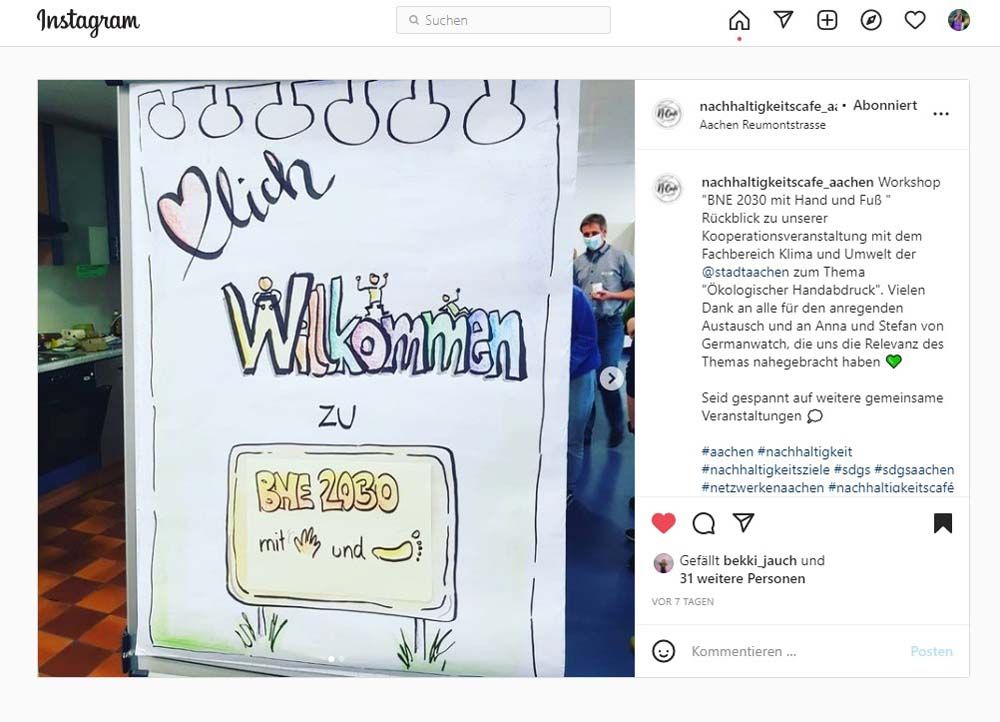 Instagram
Suchen
lich
Willkommen
zu
BNE 2030
mit und
nachhaltigkeitscafe_a • Abonniert
Aachen Reumontstrasse
nachhaltigkeitscafe_aachen Workshop
"BNE 2030 mit Hand und Fuß "
Rückblick zu unserer
Kooperationsveranstaltung mit dem
Fachbereich Klima und Umwelt der
@stadtaachen zum Thema
"Ökologischer Handabdruck". Vielen
Dank an alle für den anregenden
Austausch und an Anna und Stefan von
Germanwatch, die uns die Relevanz des
Themas nahegebracht haben 💚
Seid gespannt auf weitere gemeinsame
Veranstaltungen 💭
#aachen #nachhaltigkeit
#nachhaltigkeitsziele #sdgs #sdgsaachen
#netzwerkenaachen #nachhaltigkeitscafé
Gefällt bekki_jauch und
31 weitere Personen
VOR 7 TAGEN
Kommentieren ...
Posten